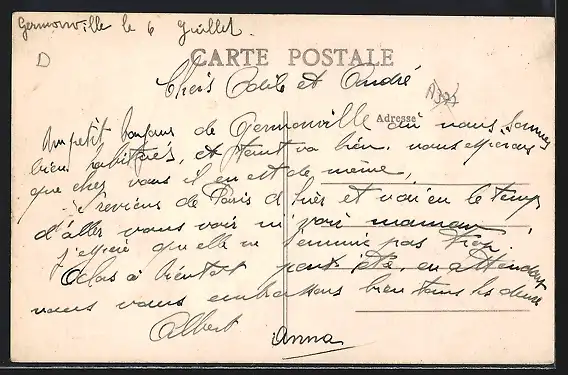 Germonville le 6 Juillet.
D
CARTE POSTALE
Chers Odile et André
A377
Adresse
Un petit bonjour de Germonville où nous sommes
bien habitués, et tout va bien. nous espérons
que chez vous il en est de même,
reviens de Paris d'hier et n'ai eu le temps
d'aller vous voir ni voir maman,
j'espère qu'elle ne s'ennuie pas trop.
à bientôt peut être, en attendant
nous vous embrassons bien tous les deux
Albert
Anna